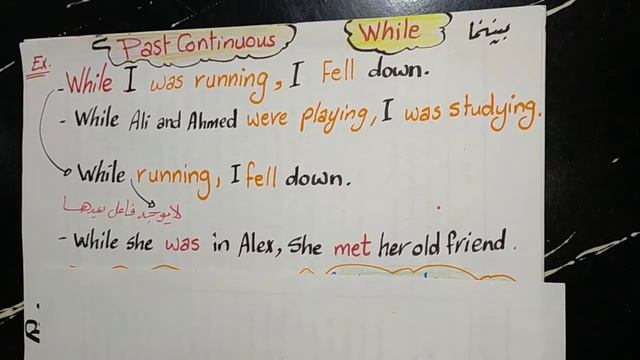 Past Continuous While بينما
Ex.
- While I was running, I Fell down.
- While Ali and Ahmed were playing, I was studying.
- While running, I fell down.
لا يوجد فاعل بعدها
- While she was in Alex, she met her old friend.